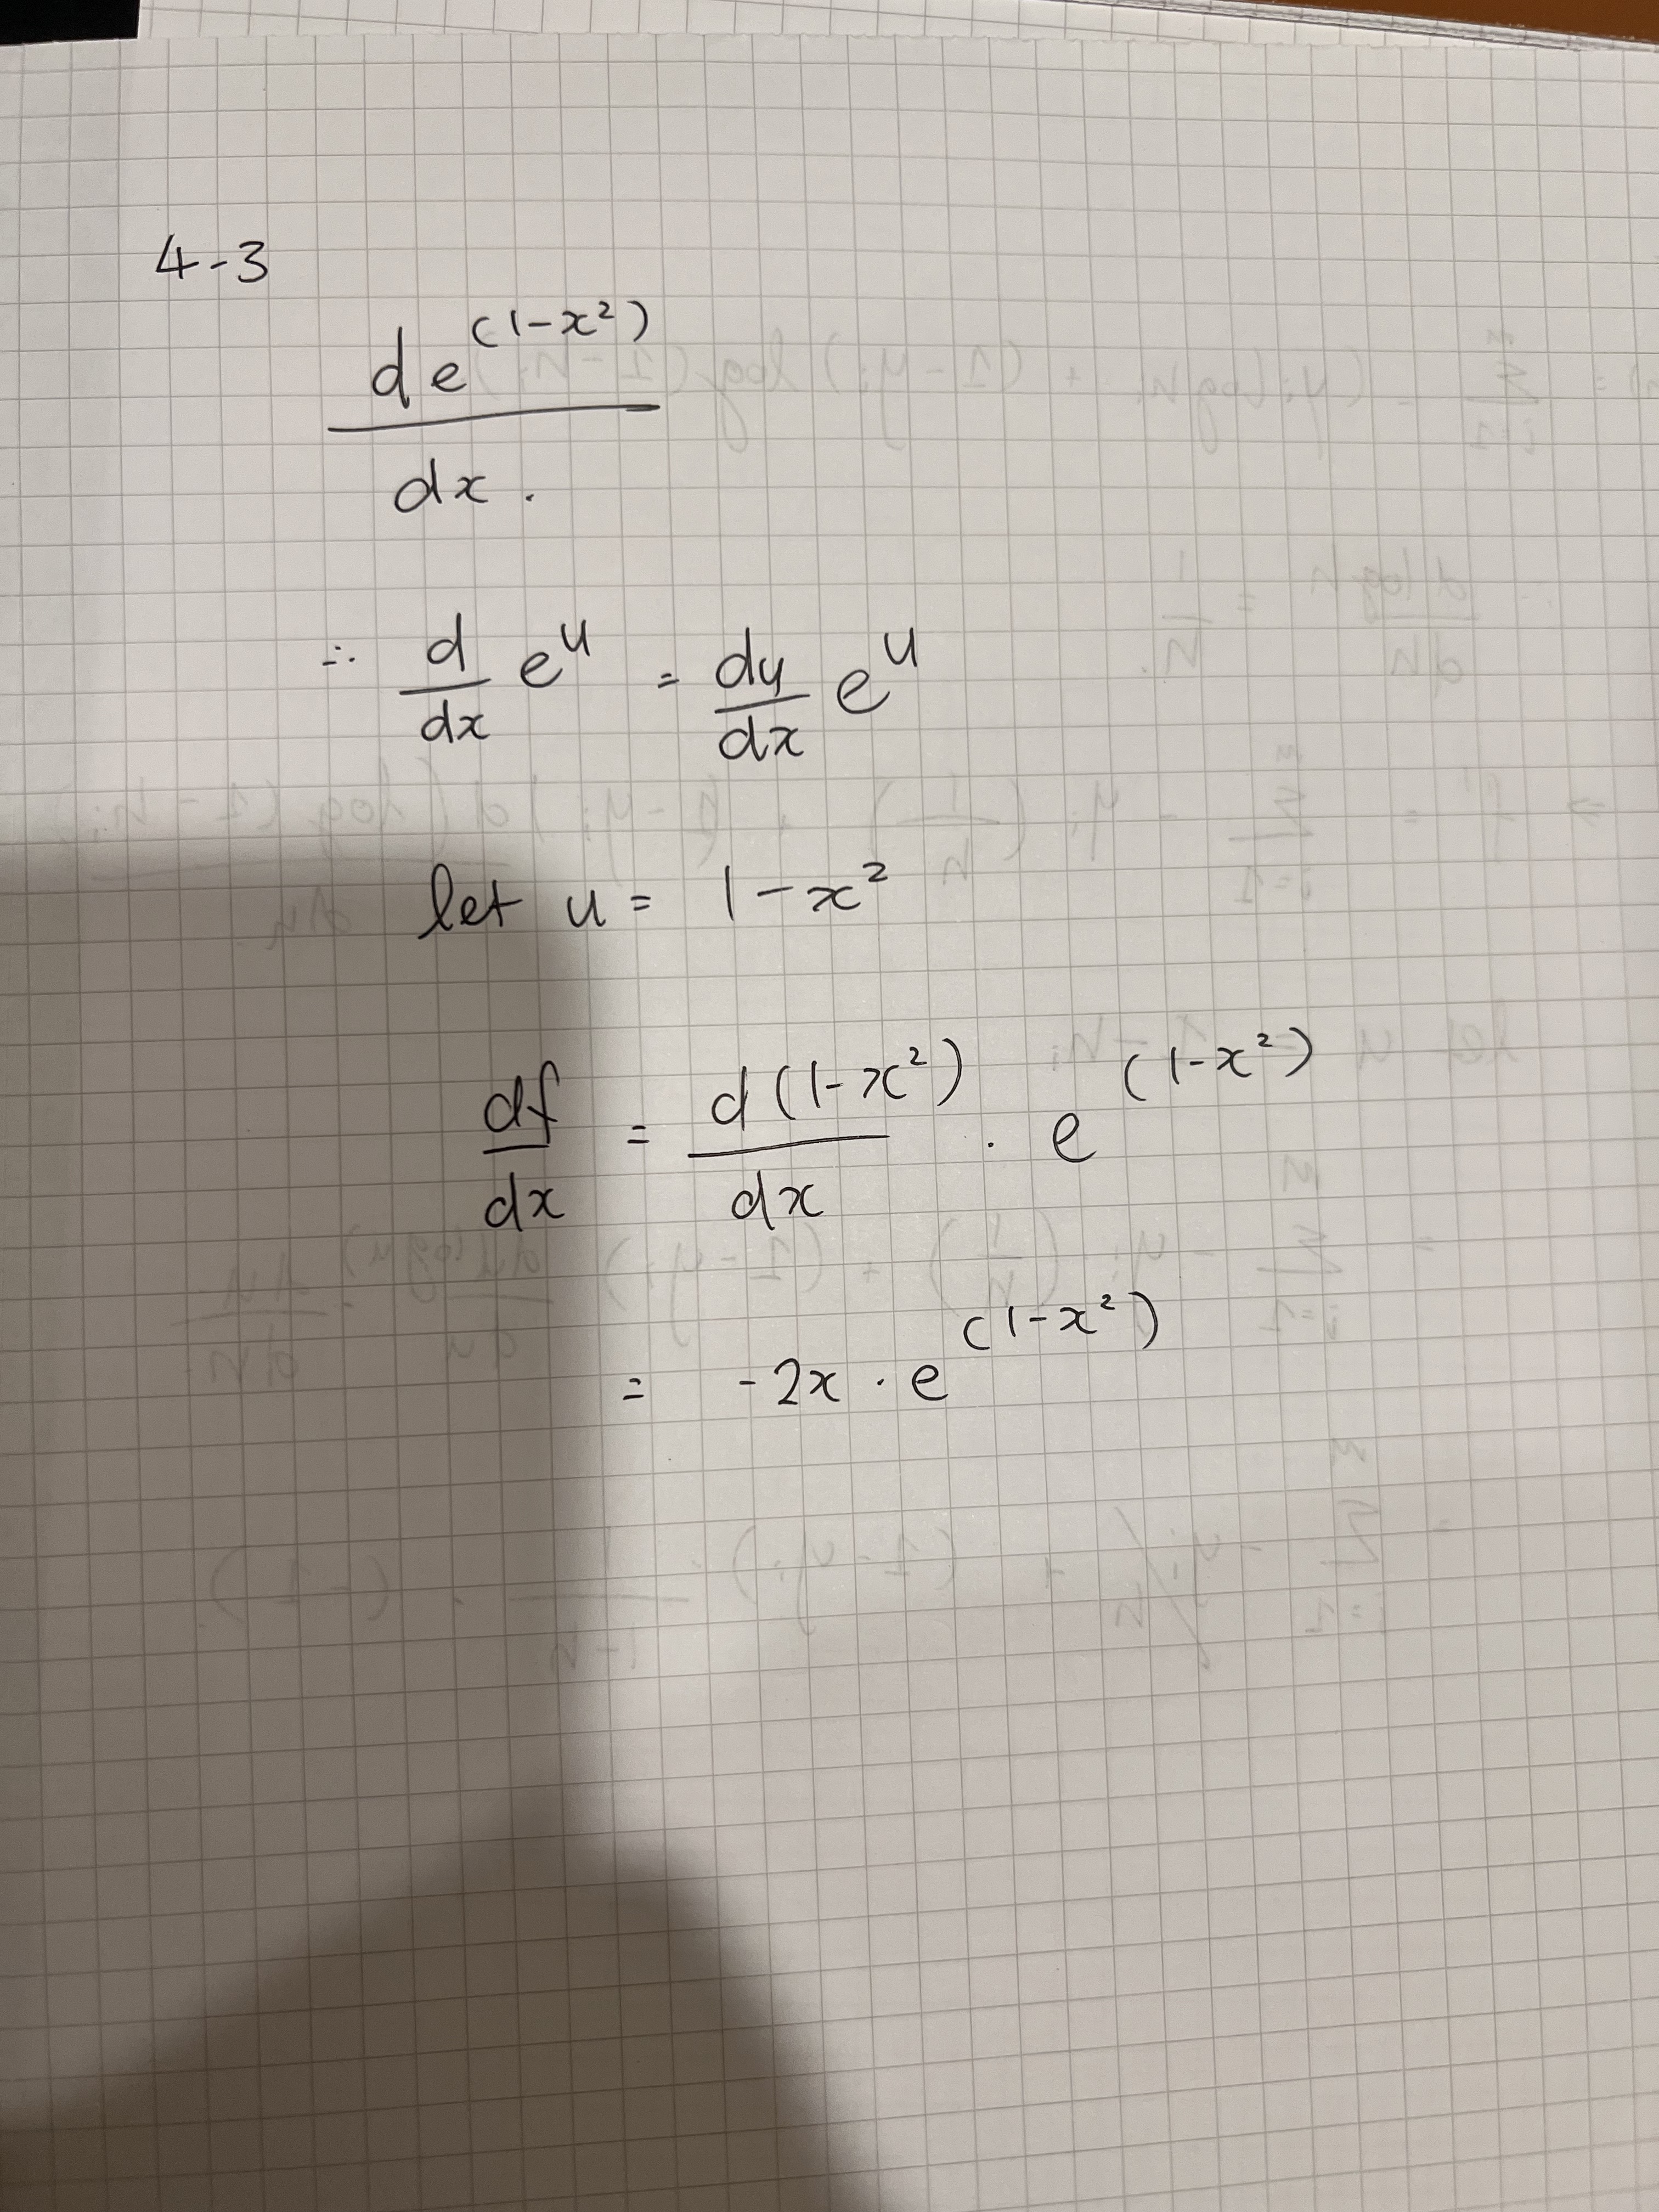 4-3
de^(1-x²)
dx.
∴ d/dx e^u = du/dx e^u
let u = 1-x²
df/dx = d(1-x²)/dx · e^(1-x²)
= -2x · e^(1-x²)